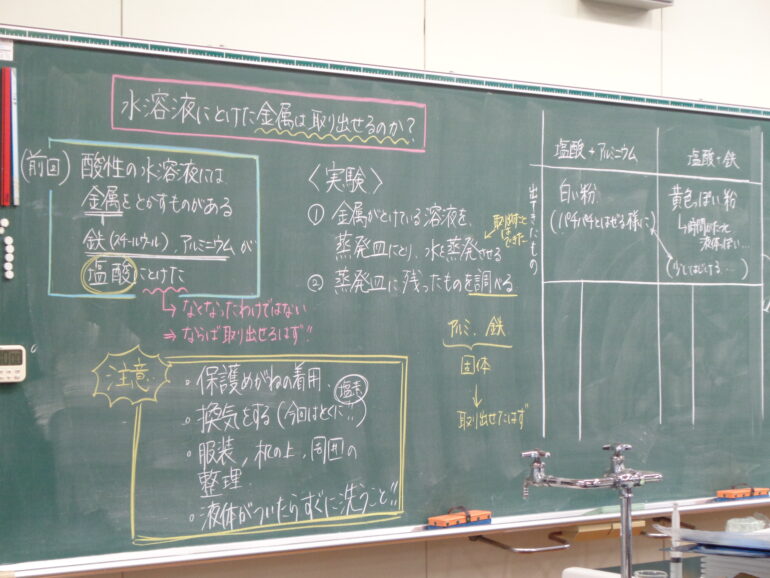 水溶液にとけた金属は取り出せるのか？
(前回) 酸性の水溶液には
金属をとかすものがある
鉄(スチールウール)、アルミニウムが
塩酸にとけた
→なくなったわけではない
⇒ならば取り出せるはず!!
〈実験〉
① 金属がとけている溶液を、
蒸発皿にとり、水を蒸発させる
② 蒸発皿に残ったものを調べる
取り出すこと
はできた…
アルミ、鉄
固体
↓
取り出せたはず
注意…
・保護めがねの着用、
・換気をする(今回はとくに!!)
塩素
・服装、机の上、周囲の
整理
・液体がついたらすぐに洗うこと!!
出てきたもの
塩酸+アルミニウム
白い粉
(パチパチとはぜる様に)
塩酸+鉄
黄色っぽい粉
↳時間がたつと
液体っぽい…
(少しはじける…)